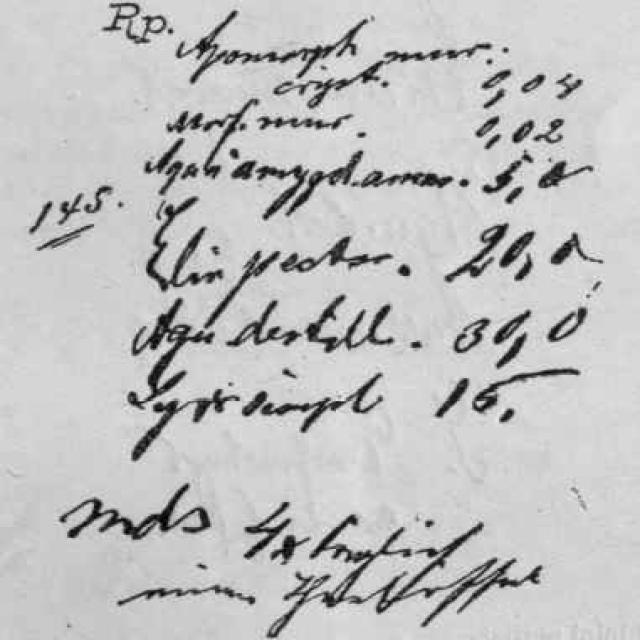 Rp. Apomorph mur.
cryst. 0,04
Morf. mur. 0,02
Aqu amygd. amar. 5,0
145.
Elix pector. 20,0
Aqu destill. 30,0
Syr simpl 15,
mds 4x täglich
einen